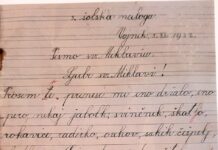 3. šolska naloga.
Vojnik, 5. XII. 1922.
Pismo sv. Miklavžu.
Ljubi sv. Miklavž!
Prosim te, prinesi mi eno deželo, eno
pero, nekaj jabolk, svinčnik, škatljo,
rokavice, radirko, orehov,